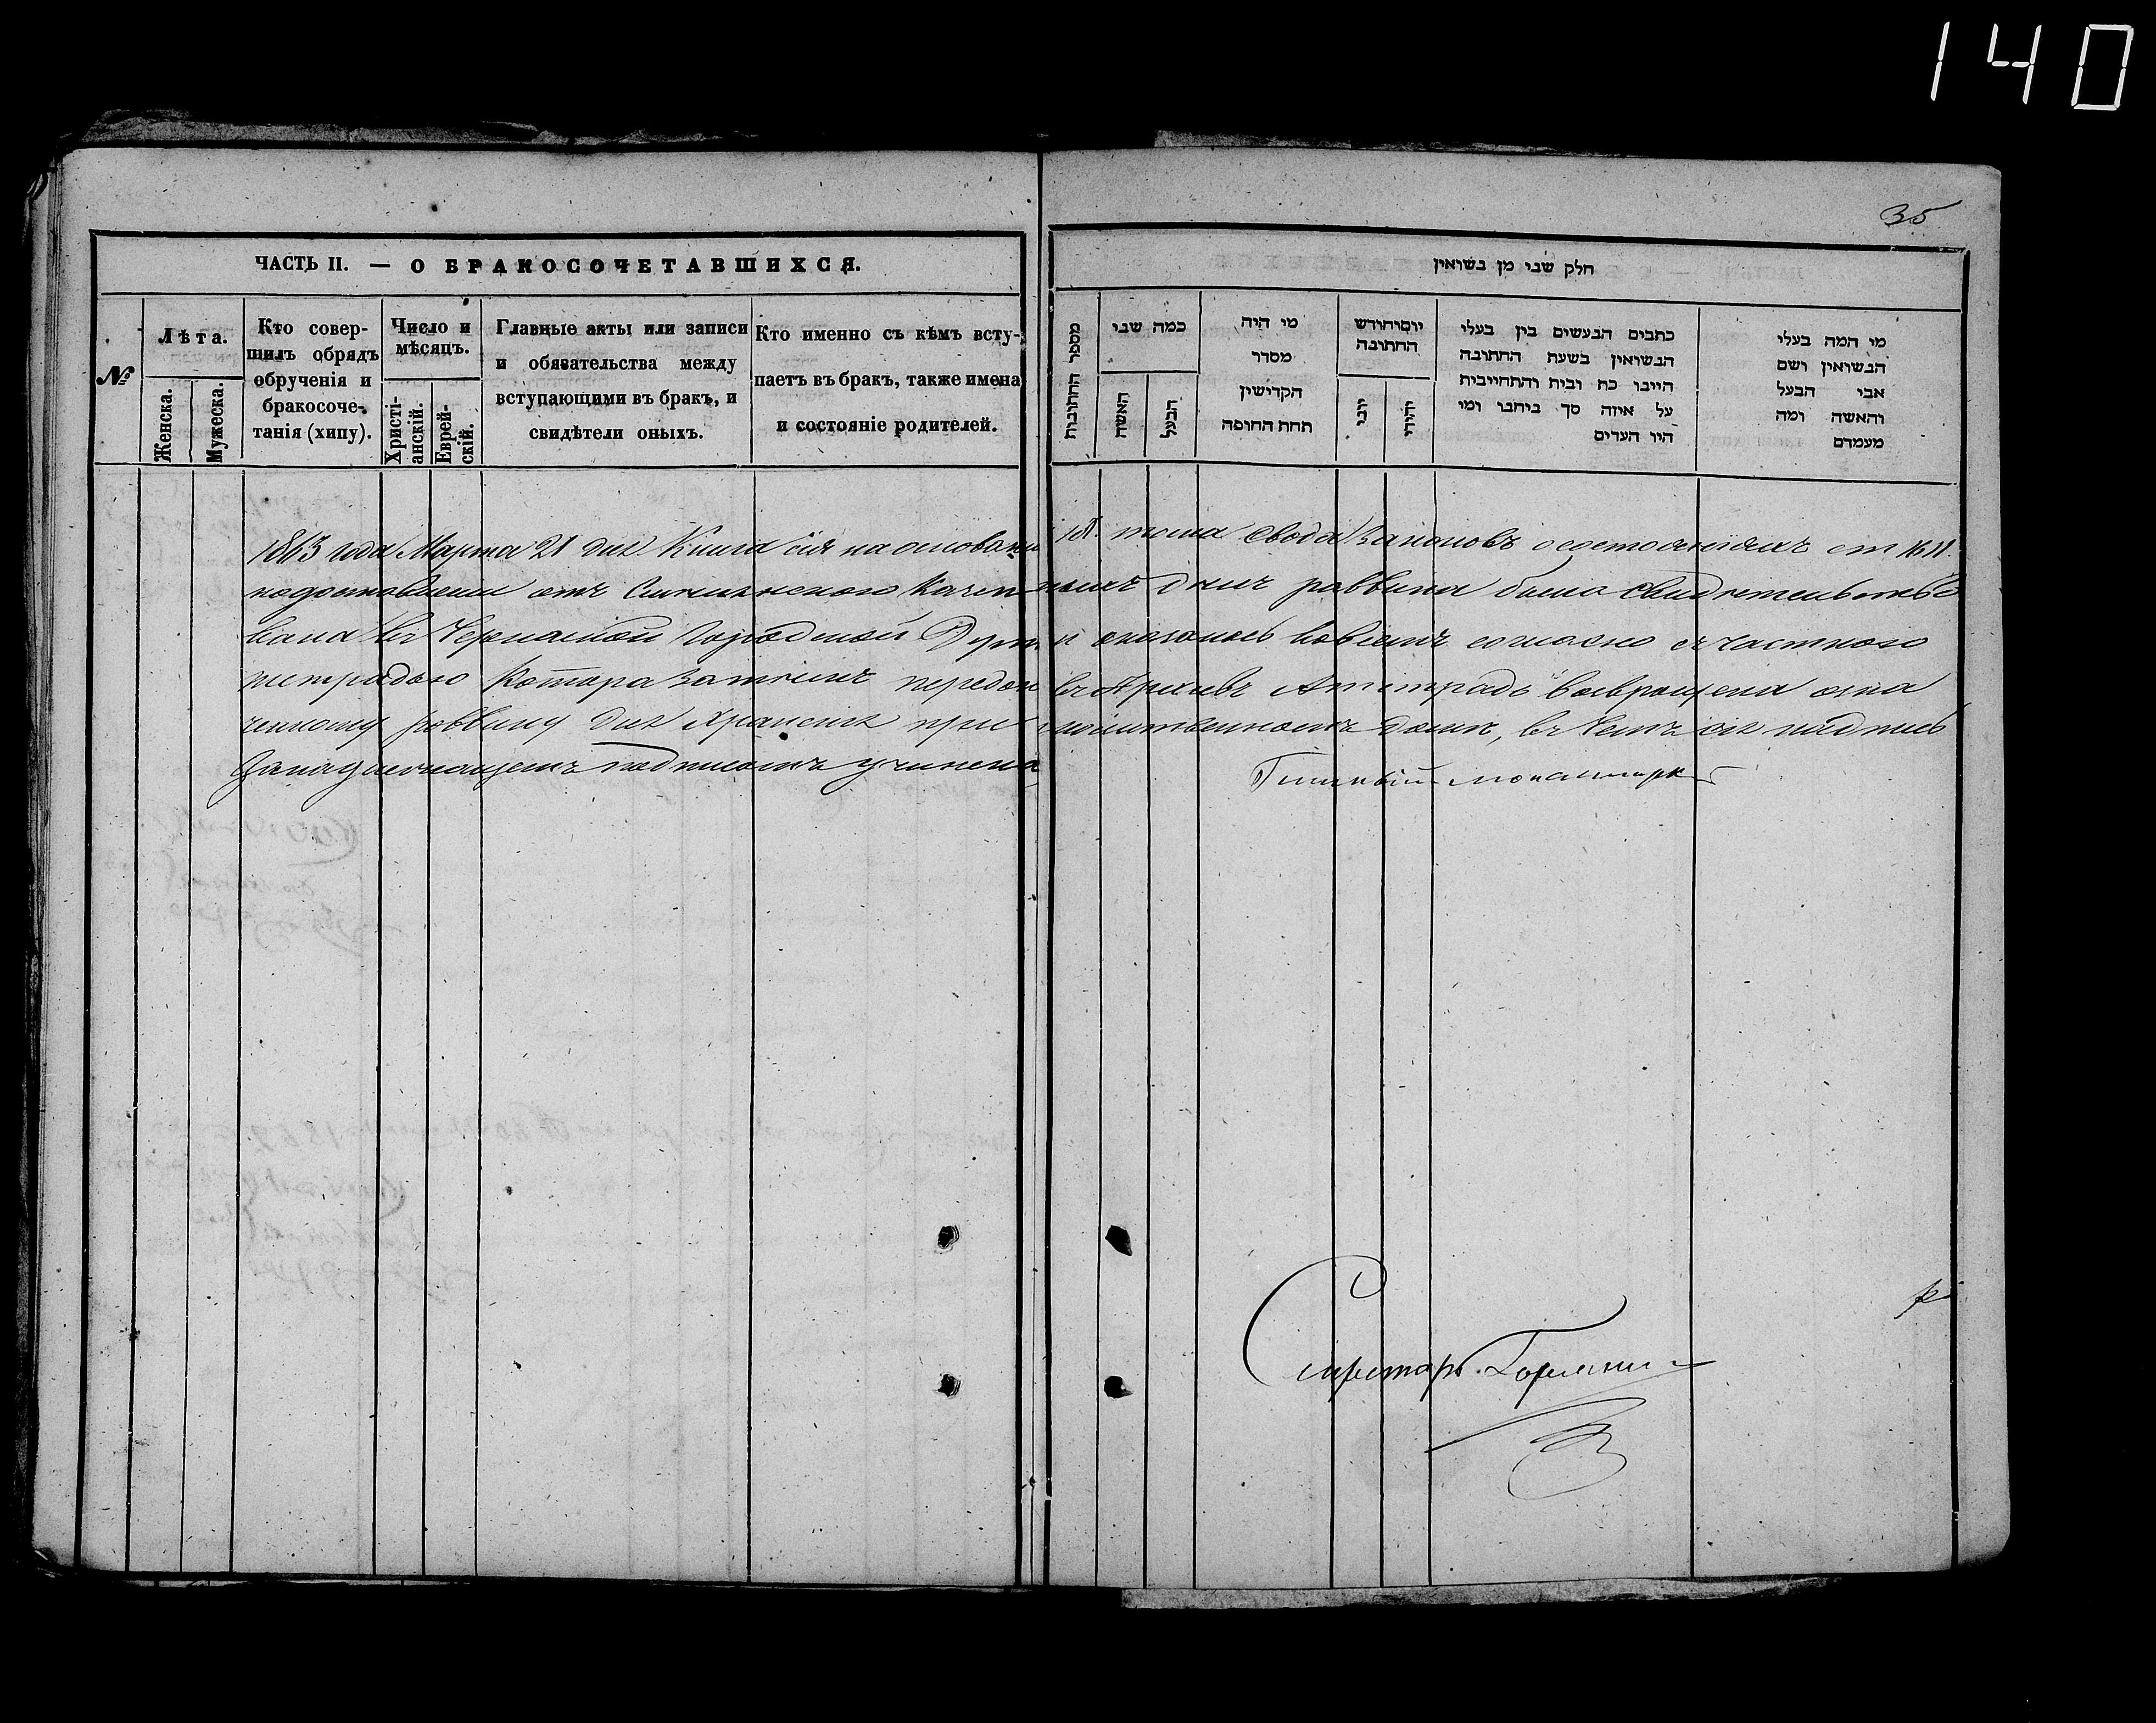 140
35
ЧАСТЬ II. — О БРАКОСОЧЕТАВШИХСЯ.
№
Лѣта.
Женска.
Мужеска.
Кто совер-
шилъ обрядъ
обрученія и
бракосоче-
танія (хипу).
Число и
мѣсяцъ.
Христі-
анскій.
Еврей-
скій.
Главные акты или записи
и обязательства между
вступающими въ бракъ, и
свидѣтели оныхъ.
Кто именно съ кѣмъ всту-
паетъ въ бракъ, также имена
и состояніе родителей.
חלק שני מן נשואין
מספר החתונות
כמה שני
האשה
הבעל
מי היה
מסדר
הקדישין
תחת החופה
יום וחודש
החתונה
יוני
יהודי
כתבים הנעשים בין בעלי
הנשואין בשעת החתונה
היינו כח ובית והתחייבות
על איזה סך ביחבר ומי
היו העדים
מי המה בעלי
הנשואין ושם
אבי הבעל
והאשה ומה
מעמדם
1863 года Марта 21 дня Книга сія на основаніи IX. тома Свода Законовъ о состояніяхъ ст
по доставленіи отъ раввина была свидѣтельство
вана въ Городской Думѣ и оказалась согласно съ частною
тетрадью Котора затѣмъ передана въ Архивъ тетрадь возвращена озна
ченному раввину для храненія при молитвенномъ домѣ, въ чемъ сія надпись
за надлежащемъ подписомъ учинена
Гласный
Секретарь